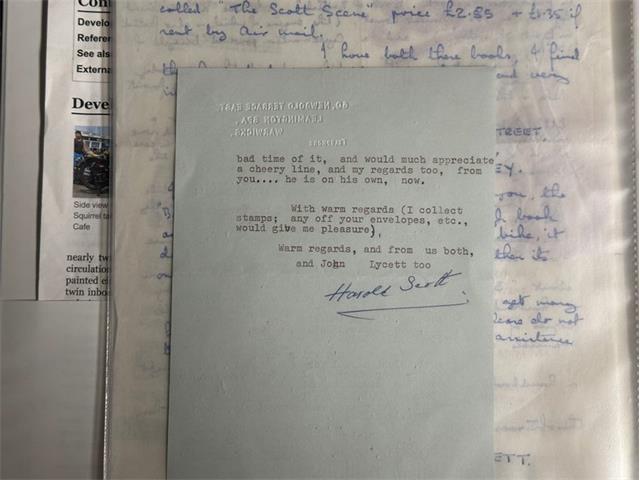 Con
Develo
Referen
See als
Externa
Deve
Side view
Squirrel ta
Cafe
nearly tw
circulation
painted ei
twin inbo
called "The Scott Scene" price £2.85 + £1.35 if
sent by Air mail.
I have both these books, I find
and very
60, NEWBOLD TERRACE EAST
LEAMINGTON SPA,
WARWICKS.
bad time of it, and would much appreciate
a cheery line, and my regards too, from
you.... he is on his own, now.
With warm regards (I collect
stamps; any off your envelopes, etc.,
would give me pleasure),
Warm regards, and from us both,
and John Lycett too
Harold Scott
TREET.
EY.
you, the
book
bike, it
then its
get many
please do not
assistance
ETT.